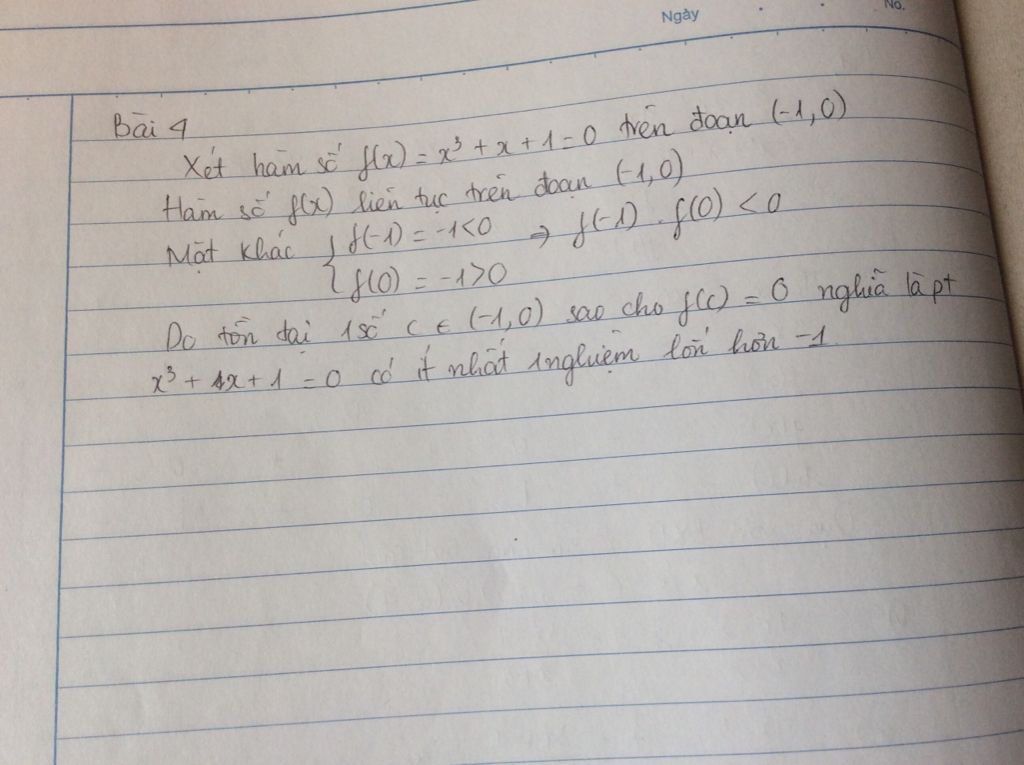 Ngày
No.
Bài 4
Xét hàm số f(x) = x³ + x + 1 = 0 trên đoạn (-1,0)
Hàm số f(x) liên tục trên đoạn (-1,0)
Mặt khác { f(-1) = -1<0 ⇒ f(-1) . f(0) < 0
f(0) = -1>0
Do tồn đại 1 số c ∈ (-1,0) sao cho f(c) = 0 nghiã là pt
x³ + 1x + 1 = 0 có ít nhất 1 nghiệm lớn hơn -1